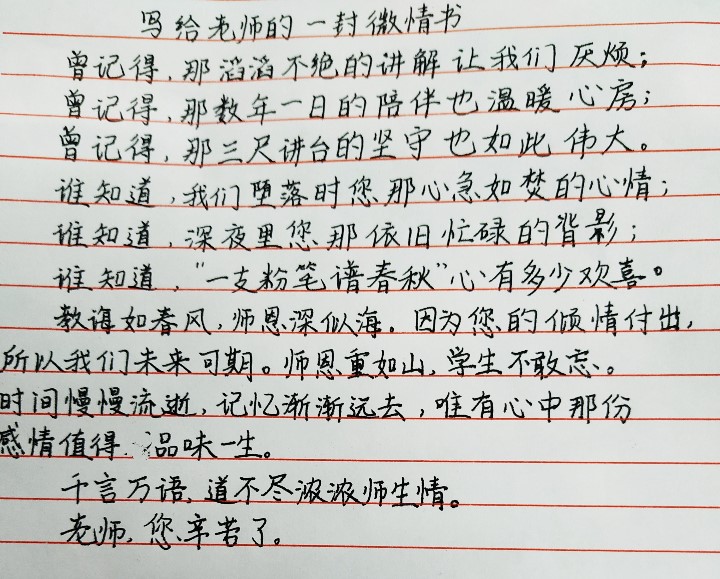 写给老师的一封微情书
曾记得，那滔滔不绝的讲解让我们厌烦；
曾记得，那数年一日的陪伴也温暖心房；
曾记得，那三尺讲台的坚守也如此伟大。
谁知道，我们堕落时您那心急如焚的心情；
谁知道，深夜里您那依旧忙碌的背影；
谁知道，“一支粉笔谱春秋”心有多少欢喜。
教诲如春风，师恩深似海。因为您的倾情付出，
所以我们未来可期。师恩重如山，学生不敢忘。
时间慢慢流逝，记忆渐渐远去，唯有心中那份
感情值得品味一生。
千言万语，道不尽浓浓师生情。
老师，您辛苦了。